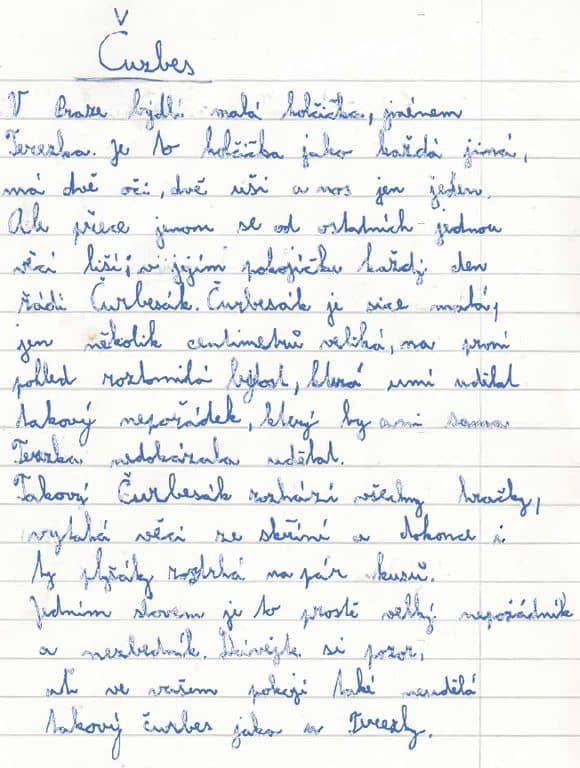 Čurbes
V Praze bydlí malá holčička, jménem
Terezka. Je to holčička jako každá jiná,
má dvě oči, dvě uši a nos jen jeden.
Ale přece jenom se od ostatních jednou
věcí liší; v jejím pokojíčku každý den
řádí Čurbesák. Čurbesák je sice malá,
jen několik centimetrů veliká, na první
pohled roztomilá bytost, která umí udělat
takový nepořádek, který by ani sama
Terezka nedokázala udělat.
Takový Čurbesák rozhází všechny hračky,
vytahá věci ze skříní a dokonce i
ty plyšáky roztrhá na pár kusů.
Jedním slovem je to prostě velký nepořádník
a nezbedník. Dávejte si pozor,
ať ve vašem pokoji také neudělá
takový čurbes jako u Terezky.